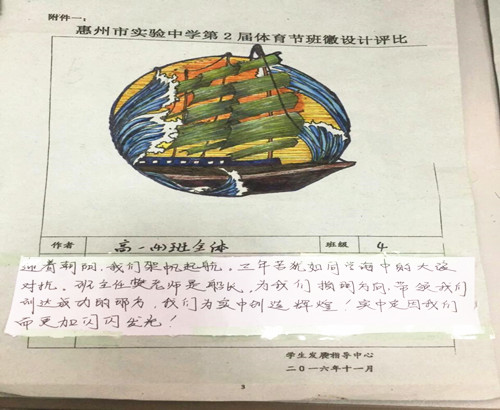 附件一：
惠州市实验中学第2届体育节班徽设计评比
作者 高一(4)班全体 班级 4
迎着朝阳，我们架帆起航，三年苦犹如同学海中的大浪
对抗，班主任樊老师是船长，为我们指明方向，带领我们
到达成功的那方，我们为实中创造辉煌！实中定因我们
而更加闪闪发光！
学生发展指导中心
二〇一六年十一月
3